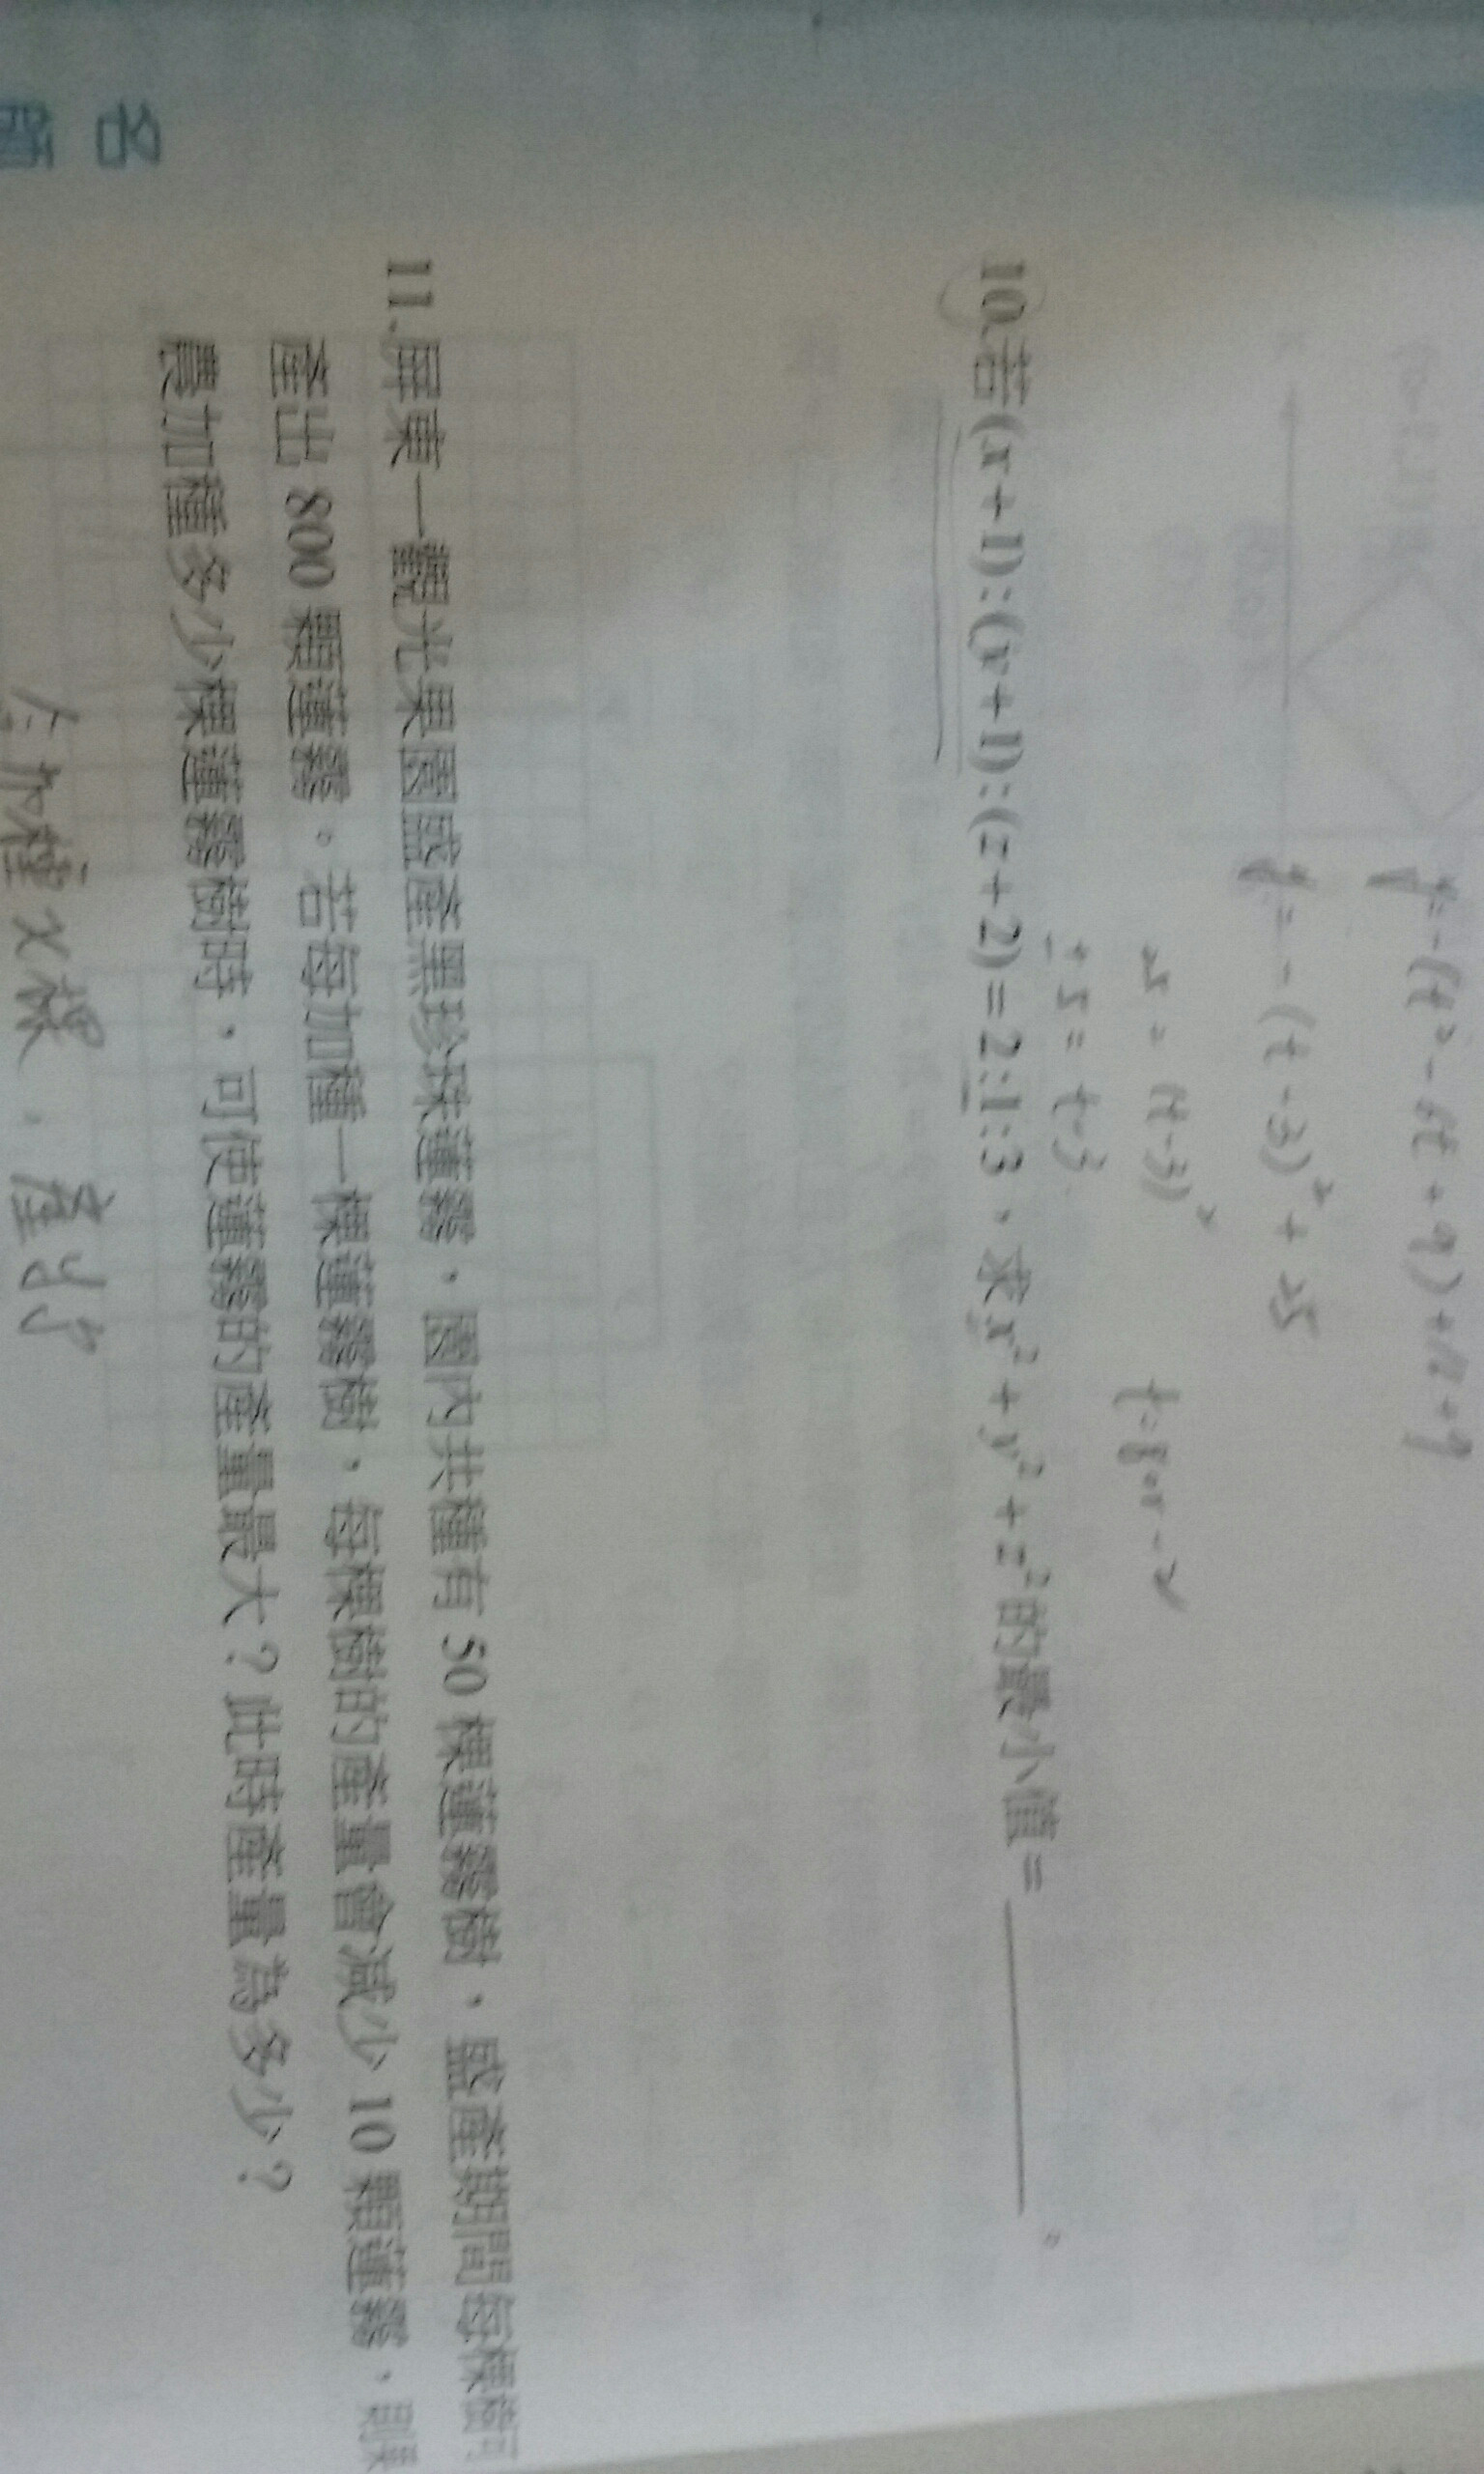 y=-(t²-6t+9)+16+9
y=-(t-3)²+25
25=(t-3)²
t=8or-2
±5=t-3
10.若(x+1):(y+1):(z+2)=2:1:3,求x²+y²+z²的最小值=____。
11.屏東一觀光果園盛產黑珍珠蓮霧,園內共種有50棵蓮霧樹,盛產期間每棵樹可
產出800顆蓮霧。若每加種一棵蓮霧樹,每棵樹的產量會減少10顆蓮霧,則果
農加種多少棵蓮霧樹時,可使蓮霧的產量最大?此時產量為多少?
加種x棵,產y
名